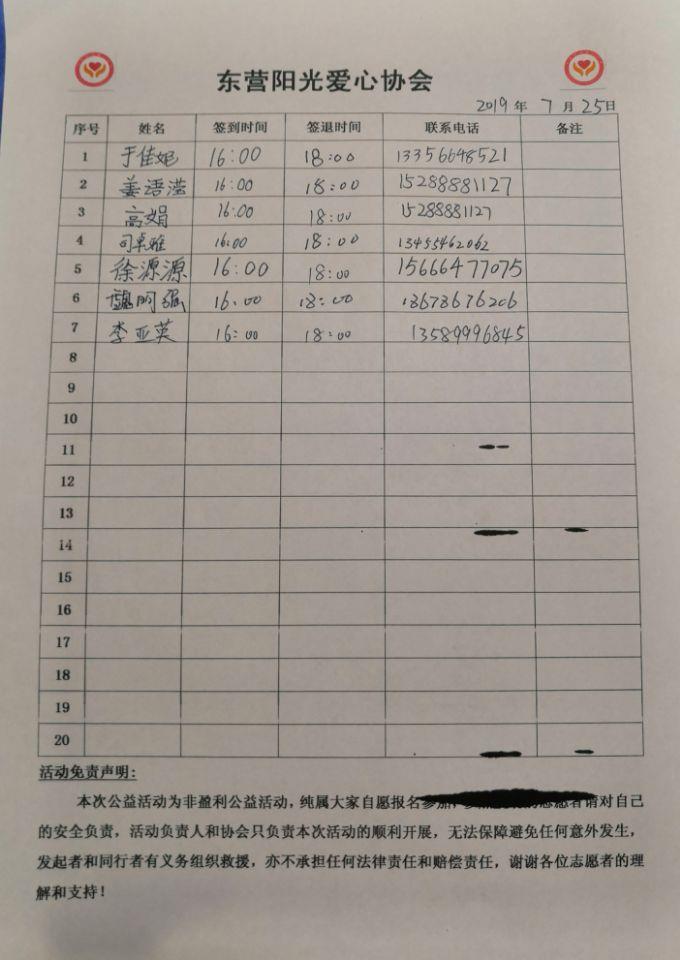 东营阳光爱心协会
2019 年 7 月 25日
序号 姓名 签到时间 签退时间 联系电话 备注
1 于佳妮 16:00 18:00 13356648521
2 姜语滢 16:00 18:00 15288881127
3 高娟 16:00 18:00 15288881127
4 司卓雅 16:00 18:00 13455462062
5 徐源源 16:00 18:00 15666477075
6 16:00 18:00 13678676206
7 李亚英 16:00 18:00 13589996845
8
9
10
11
12
13
14
15
16
17
18
19
20
活动免责声明:
本次公益活动为非盈利公益活动，纯属大家自愿报名参加，志愿者请对自己
的安全负责，活动负责人和协会只负责本次活动的顺利开展，无法保障避免任何意外发生，
发起者和同行者有义务组织救援，亦不承担任何法律责任和赔偿责任，谢谢各位志愿者的理
解和支持！